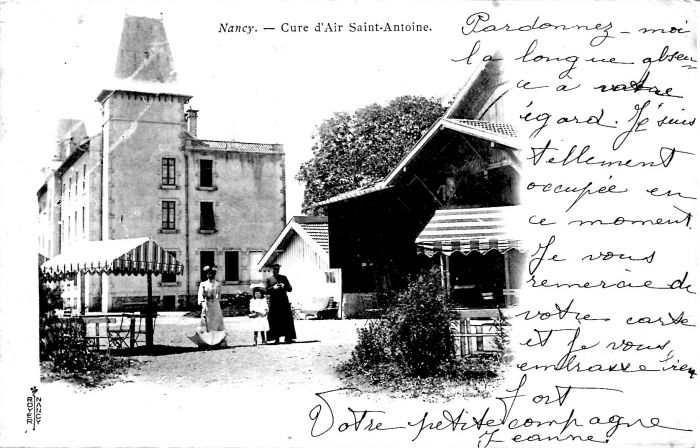 Nancy. — Cure d'Air Saint-Antoine.
Pardonnez-moi
la longue absen-
ce a votre
égard. Je suis
tellement
occupée en
ce moment.
Je vous
remercie de
votre carte
et je vous
embrasse bien
fort
Votre petite compagne
Jeanne.
ROYER
NANCY